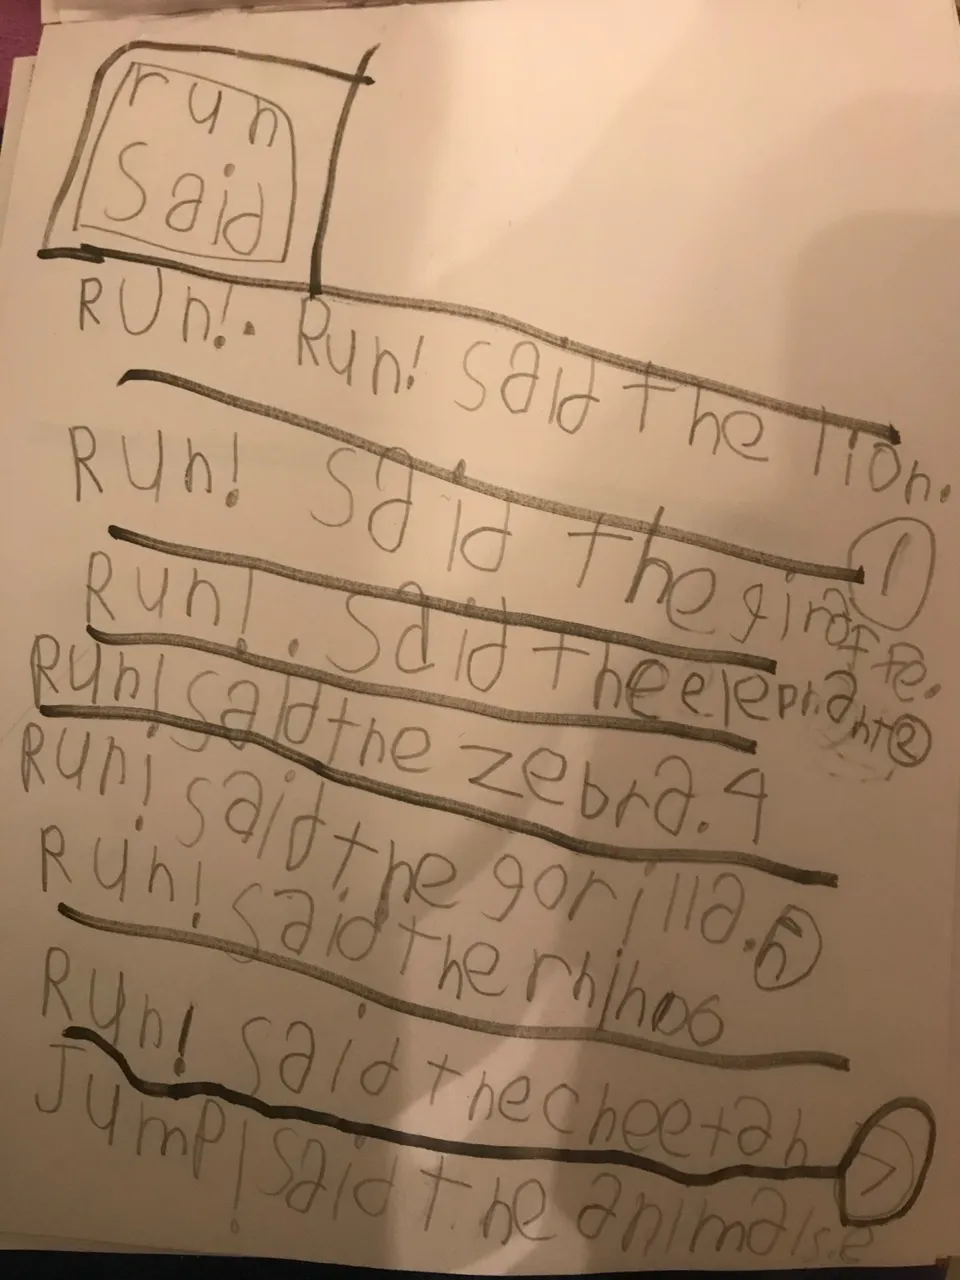 run
Said
Run!. Run! said the lion.
Run! said the giraffe. 1
Run!. Said the elephant 2
Run! said the zebra. 4
Run! said the gorilla. 5
Run! said the rhihoo
Run! said the cheetah 7
Jump! said the animals.e